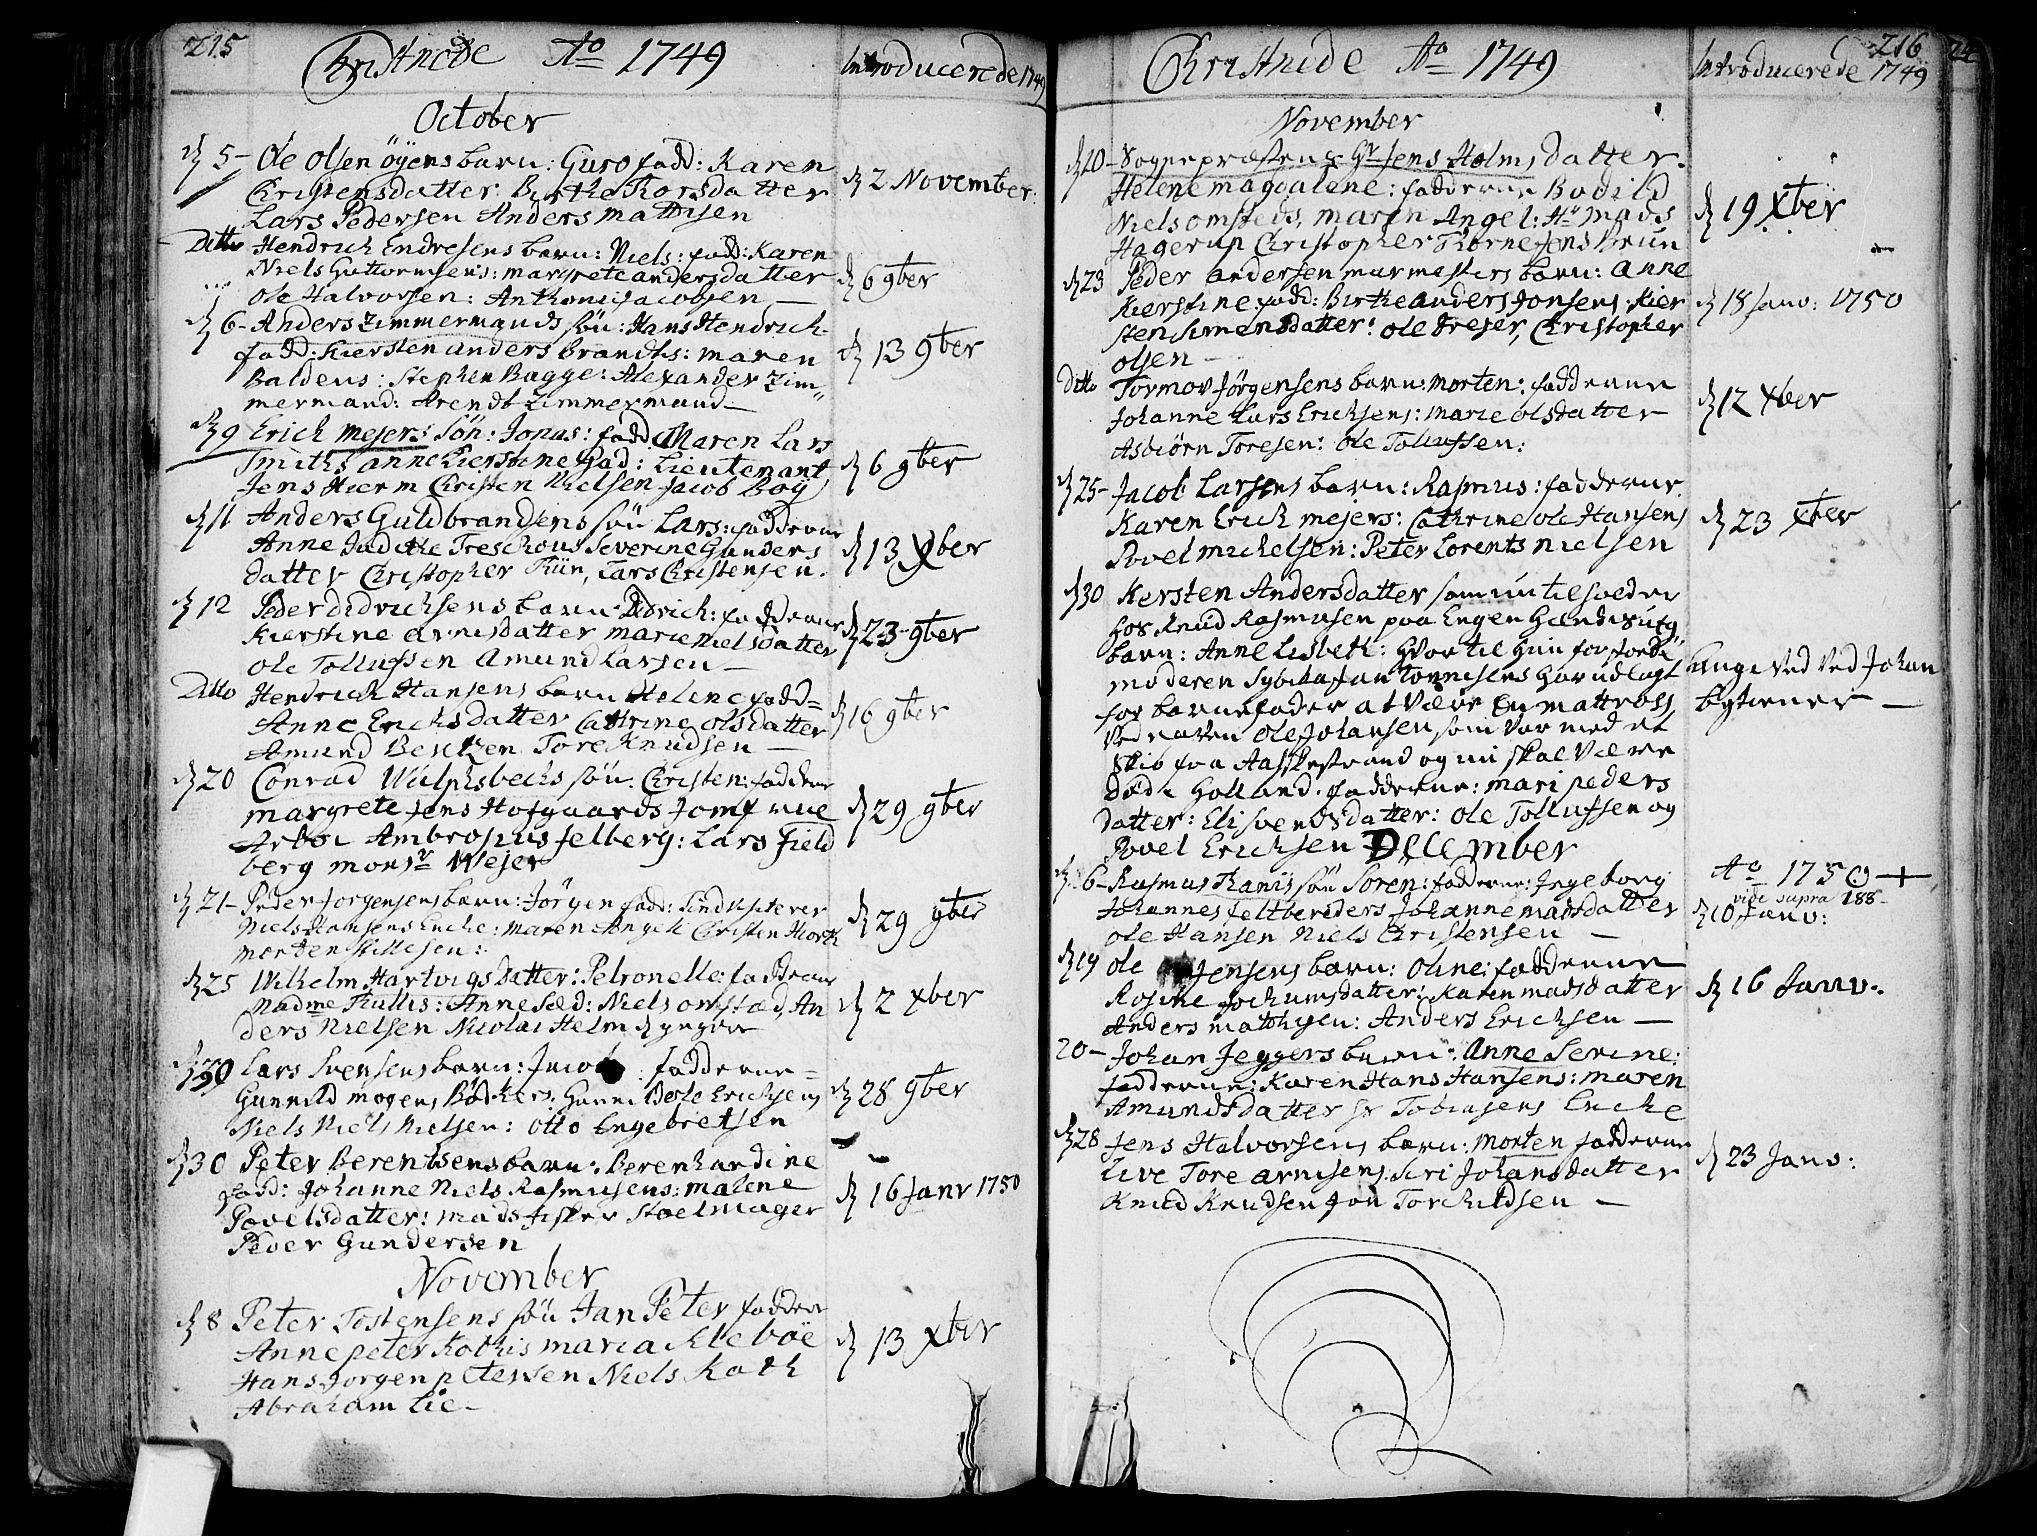 215
Christnede Ao 1749
Introducerede 1749
October
d 5 - Ole Olsen Öyens barn: Guro fadd: Karen
Christensdatter Birthe Thorsdatter
Lars Pedersen Anders Mathisen
d 2 November:
Ditto Hendrich Endresens barn: Niels: fadd: Karen
Niels Guttormsens: Margrete andersdatter
Ole Halvorsen: Anthoni Jacobsen —
d 6 9ber
d 6 - Anders Zimmermands sön: Hans Hendrich
fadd: Kiersten anders Brandts: Maren
Baldens: Stephen Bagge: Alexander Zim„
mermand: Arendt Zimmermand —
d 13 9ber
d 9 Erich Mejers Sön: Jonas: fadd: Maren Lars
Smiths Anne Kierstine Gad: Lieutenant
Jens Hierm Christen Nielsen Jacob Boy
d 6 9ber
d 11 Anders Guldbrandsens sön Lars: fadderne
Anne Judithe Treschous Severine Gunders
datter Christopher Tiin, Lars Christensen.
d 13 Xber
d 12 Peder Didrichsens barn Didrich: fadderne
Kierstine Arnisdatter Marie Nielsdatter
Ole Tollufssen Amund Larsen —
d 23 9ber
Ditto Hendrich Hansens barn Helene fadd=
Anne Erichsdatter Cathrine Olsdatter
Amund Bentzen Tore Knudsen —
d 16 9ber
d 20 Conrad Wülphsbechs sön: Christen: fadderne
Margrete Jens Hofgaards Jomfrue
Arboe Ambrosius Felberg: Lars Field
berg Monsr Wejer
d 29 9ber
d 21 - Peder Jorgensens barn: Jörgen fadd:
Niels Hansens Enche: Maren Angel: Christen Hiorth
Morten Nillesen:
d 29 9ber
d 25 Wilhelm Hartvigs datter: Petronelle: fadderne
Madme Thullis: Anne Sæd: Niels Omstæd, An
ders Nielsen Nicolai Helm
d 2 xber
d 30 Lars Svensens barn: Jacob: fadderne=
Gunnild Mogens Bödkers: Gunni Berte Erichsens
Niels Niels Nielsen: Otto Engebretsen
d 28 9ber
d 30 Peter Berentsens barn: Berenhardine
fadd: Johanne Niels Rasmusens: Malene
Povelsdatter: Mads Fisker Stoelmager
Peder Gundersen
d 16 Janv 1750
November
d 8 Peter Tostensens sön Jan Peter fadderne
Anne Peter Kothis Maria Kleböe
Hans Jorgen Petersen Niels Koth
Abraham Lie —
d 13 xber
216
Christnede Ao 1749
Introducerede 1749
November
d 20 - Sognepræstens Hr Jens Holms datter.
Helene Magdalene: fadderne Bodild
Niels Omsteds, Maren Angel: Hr Mads
Hagerup Christopher Tiornesens Brun
d 19 Xber
d 23 Peder Andersen murmesters barn: Anne
Kierstine: fadd: Birthe Anders Jonsens: Kier
sten Simensdatter: Ole Dreyer, Christopher
Olsen —
d 18 Janv: 1750
Ditto Tormov Jörgensens barn: Morten: fadderne
Johanne Lars Erichsens: Marie Olsdatter
Asbiörn Toresen: Ole Tollufssen:
d 12 xber
d 25 - Jacob Larsens barn: Rasmus: fadderne
Karen Erich Mejers: Cathrine Ole Hansens
Povel Michelsen: Peter Lorents Nielsen
d 23 xber
d 30 Kersten Andersdatter som nu tilholder
hos Knud Rasmusen paa Engen hendes uægte
barn: Anne Lisbeth: hvortil hun for
moderen har udlagt
for barnefader at være En mattross
ved navn Ole Johansen som var med et
Skib fra Aasgestrand og nu skal være
död i Holland. fadderne: Mari Peders
datter: Eli Svendsdatter: Ole Tollufssen og
Povel Erichsen
Angived ved Johan
Bytiener —
December
d 6 - Rasmus Thanis sön Soren: fadderne: Ingeborg
Johannes Feltbereders Johanne Madsdatter
Ole Hansen Niels Christensen —
Ao 1750 +
vide supra 188
d 10 Janv:
d 19 Ole Jensens barn: Oline: fadderne
Rosine Jochumsdatter: Karen Madsdatter
Anders Mathisen: Anders Erichsen —
d 16 Janv.
20 - Johan Jeggers barn: Anne Serine:
fadderne: Karen Hans Hansens: Maren
Amundsdatter Sr Tobiasens Encke
d 28 Jens Halvorsens barn: Morten fadderne
Live Tore Arnesens: Siri Johansdatter
Knud Knudsen Jon Torchildsen —
d 23 Janv: